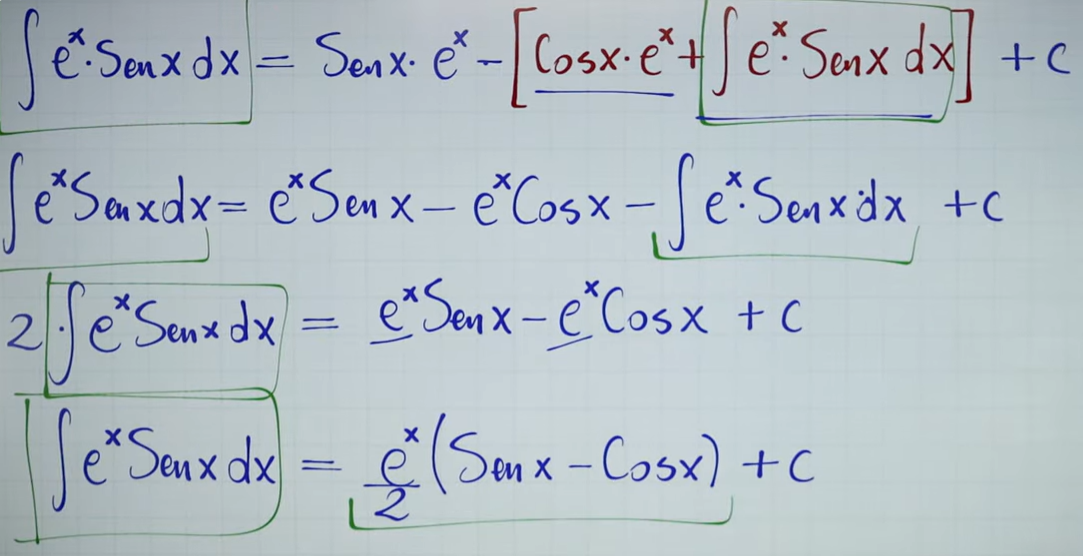 ∫ eˣ·Senx dx = Senx·eˣ − [Cosx·eˣ + ∫ eˣ·Senx dx] + C
∫ eˣSenxdx = eˣSenx − eˣCosx − ∫ eˣ·Senx·dx + C
2·∫ eˣSenxdx = eˣSenx − eˣCosx + C
∫ eˣSenxdx = eˣ/2 (Senx − Cosx) + C